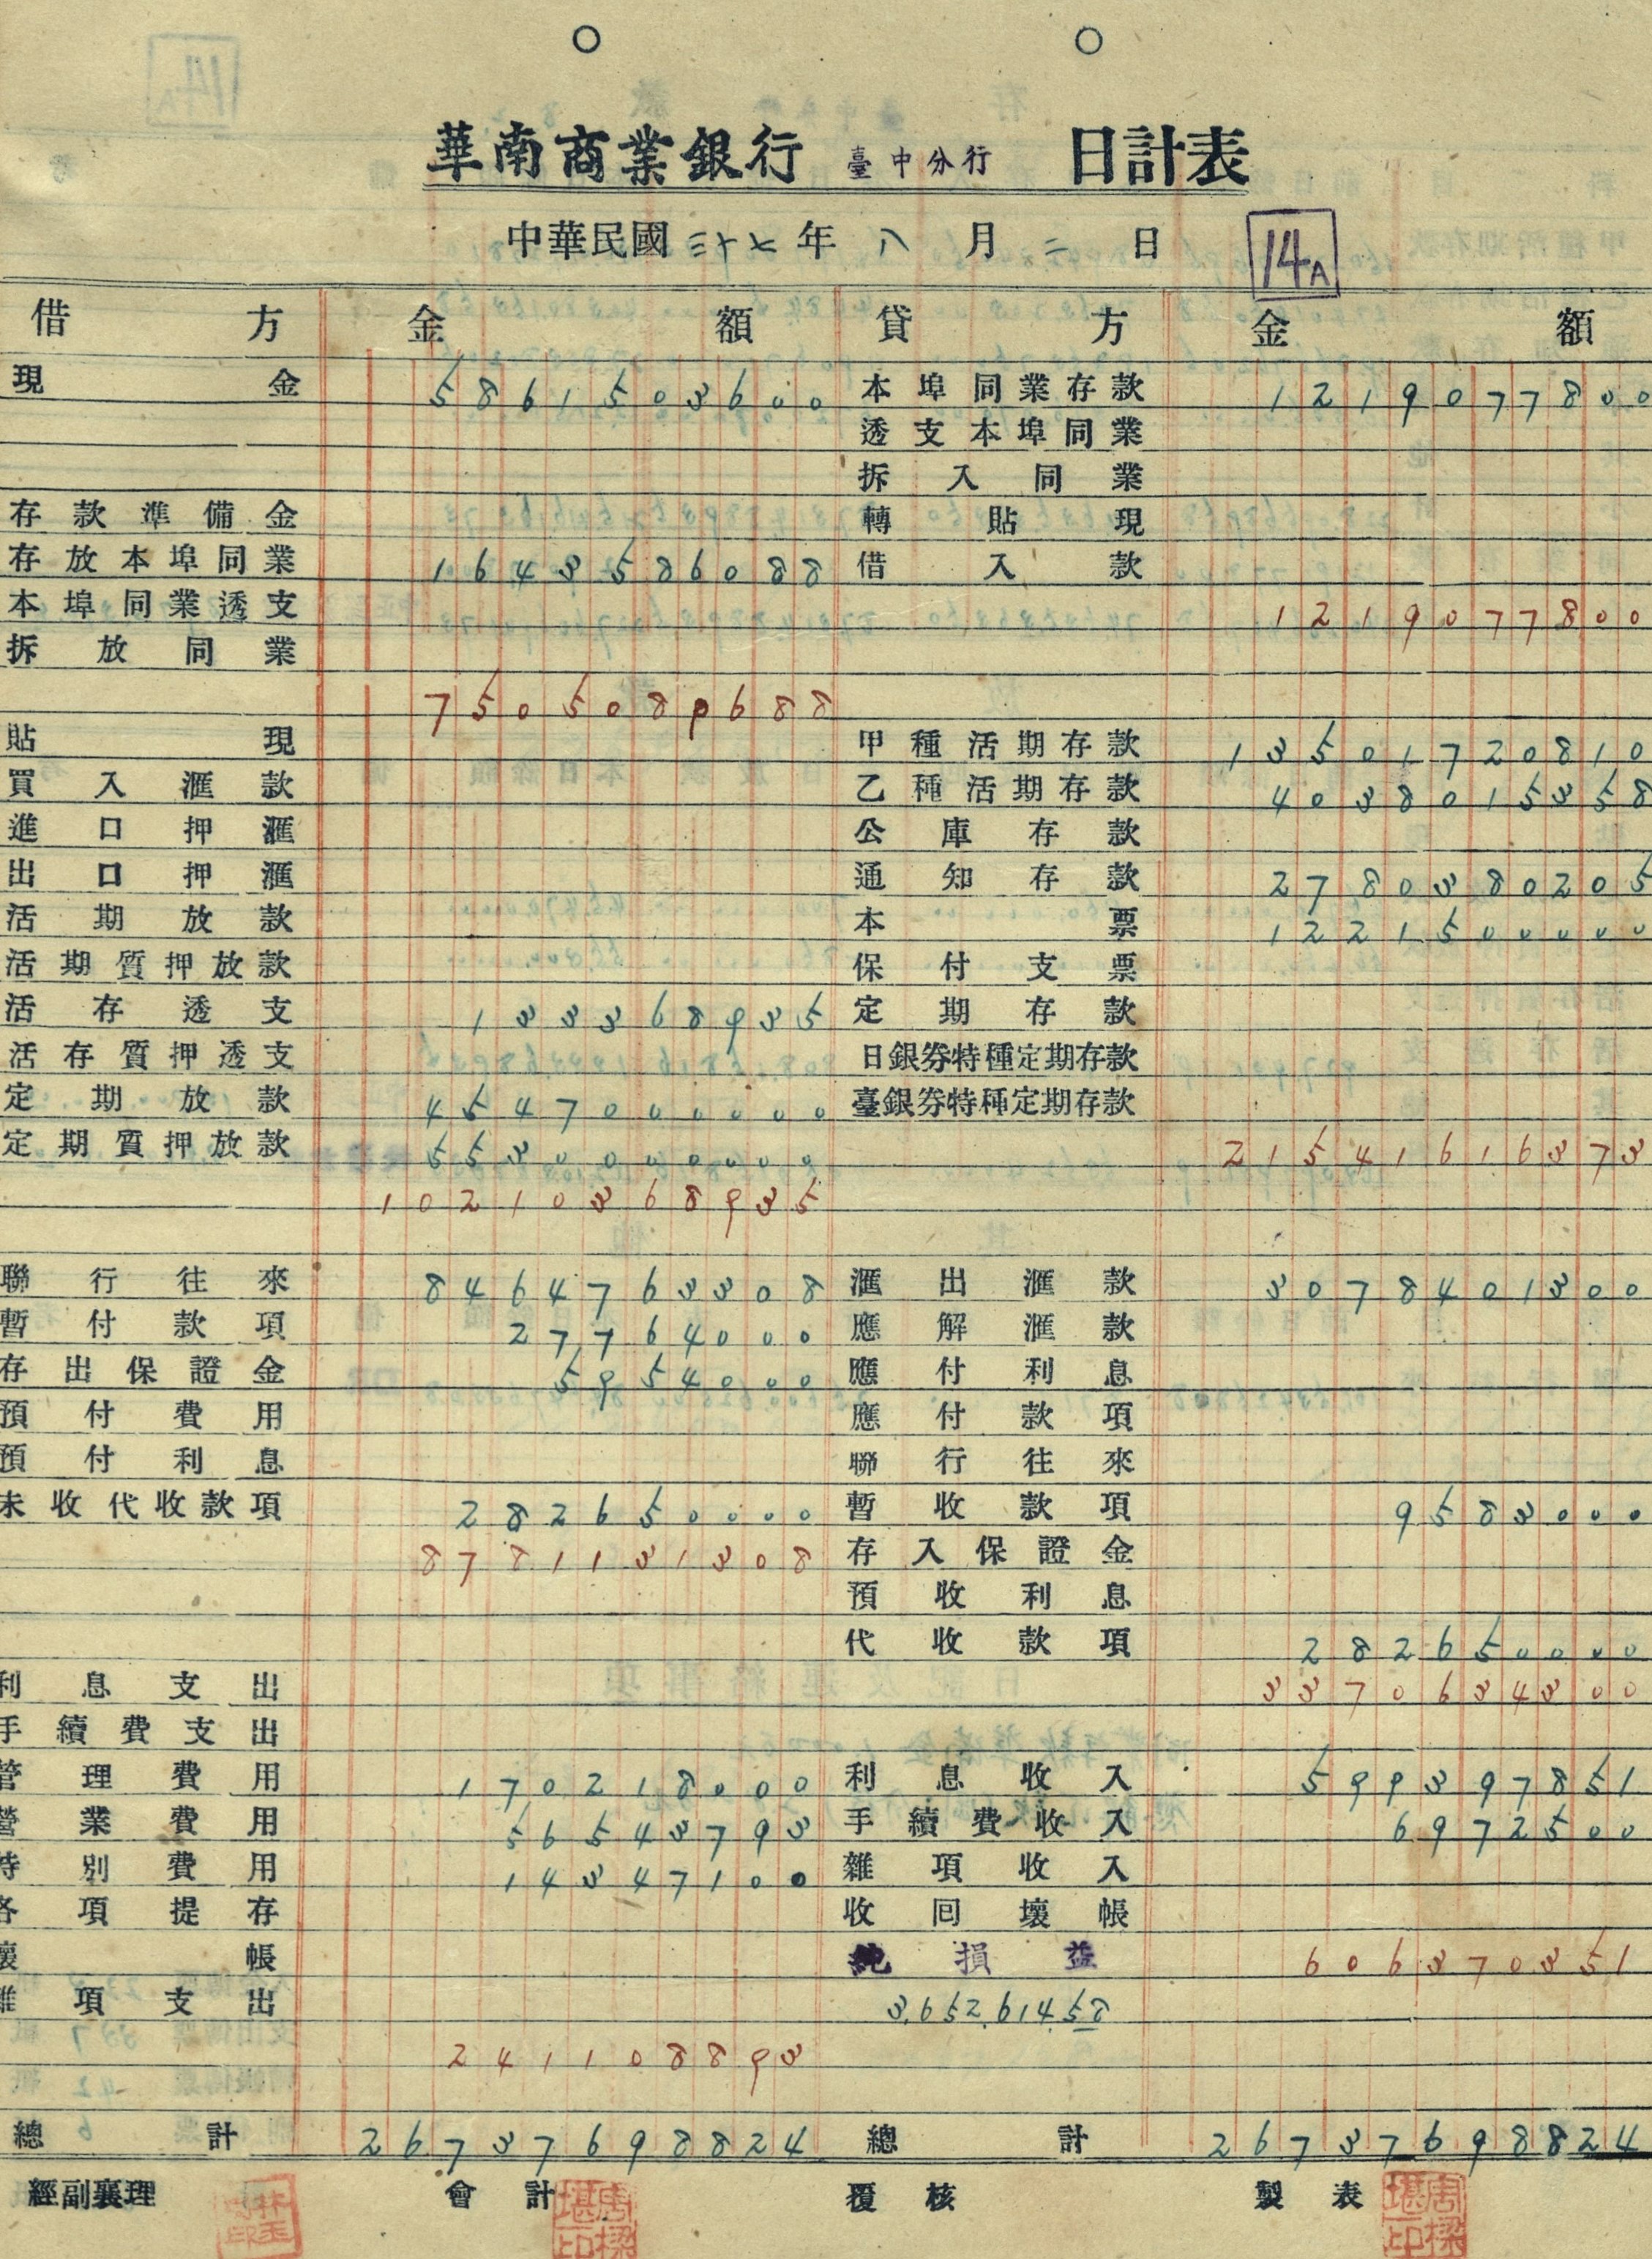 14A
華南商業銀行 臺中分行 日計表
中華民國 三十七 年 八 月 二 日
借方 金額 貸方 金額
現金 5861503600 本埠同業存款 1219077800
透支本埠同業
拆入同業
存款準備金 轉貼現
存放本埠同業 1643586088 借入款
本埠同業透支 1219077800
拆放同業
7505089688
貼現 甲種活期存款 13501720810
買入滙款 乙種活期存款 4038015358
進口押滙 公庫存款
出口押滙 通知存款 2780380205
活期放款 本票 1221500000
活期質押放款 保付支票
活存透支 133368935 定期存款
活存質押透支 日銀劵特種定期存款
定期放款 4547000000 臺銀劵特種定期存款
定期質押放款 5530000000 21541616373
10210368935
聯行往來 8464763308 滙出滙款 3078401300
暫付款項 27764000 應解滙款
存出保證金 5954000 應付利息
預付費用 應付款項
預付利息 聯行往來
未收代收款項 282650000 暫收款項 9583000
8781131308 存入保證金
預收利息
代收款項 282650000
利息支出 3370634300
手續費支出
管理費用 170218000 利息收入 599397851
營業費用 56543793 手續費收入 6972500
特別費用 14347100 雜項收入
各項提存 收回壞帳
壞帳 純損益 606370351
雜項支出 3,652,614.58
241108893
總計 26737698824 總計 26737698824
經副襄理 會計 覆核 製表